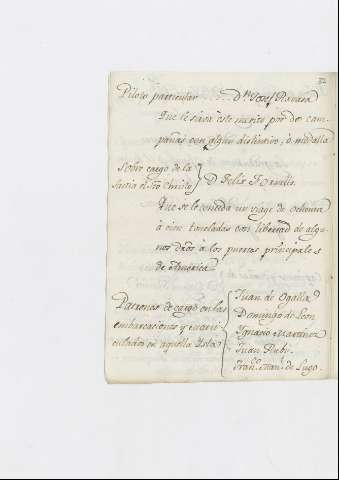 32
Piloto particular ..... Dn. Josef Ravara
Que le sirva este merito por dos cam-
pañas con algun distintivo, ò medalla
Sobre cargo de la
Saetia el Sto Christo } D. Felix Tornills.
Que se le conceda un viage de ochenta
à cien toneladas con libertad de algu-
nos dros à los puertos principales
de America
Patrones de cargo en las
embarcaciones y
en aquella Isla {
Juan de Ogalla
Domingo de Leon
Ygnacio Martinez
Juan Rubi.
Franco. Manl. de Lugo.